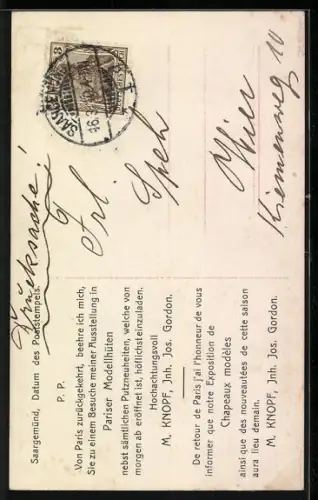 Drucksache!
SAARGEMÜND
16.3
3
Frl.
Speh
Hier
Riemenweg 10
Saargemünd, Datum des Poststempels.
P. P.
Von Paris zurückgekehrt, beehre ich mich,
Sie zu einem Besuche meiner Ausstellung in
Pariser Modellhüten
nebst sämtlichen Putzneuheiten, welche von
morgen ab eröffnet ist, höflichst einzuladen.
Hochachtungsvoll
M. KNOPF, Jnh. Jos. Gordon.
De retour de Paris j'ai l'honneur de vous
informer que notre Exposition de
Chapeaux modèles
ainsi que des nouveautées de cette saison
aura lieu demain.
M. KNOPF, Jnh. Jos. Gordon.